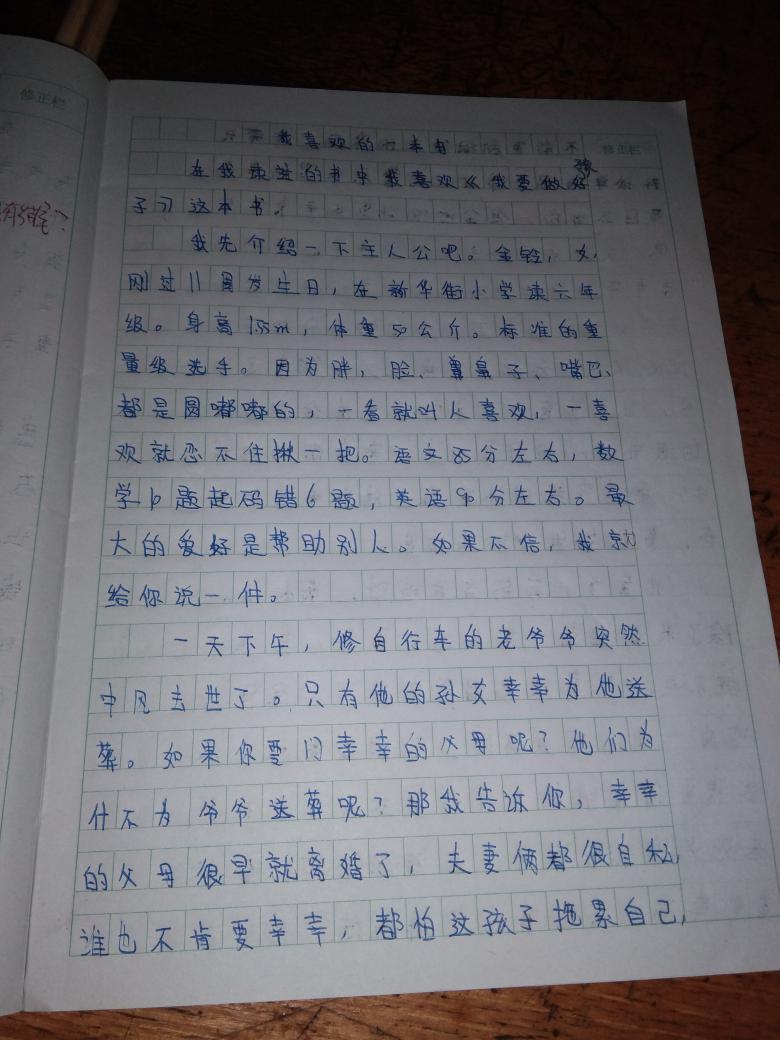 修正栏
有结尾?
我喜欢的一本书
修正栏
在我读过的书中我喜欢《我要做好孩
子》这本书。
我先介绍一下主人公吧。金铃,女,
刚过11周岁生日,在新华街小学读六年
级。身高155m,体重50公斤。标准的重
量级选手。因为胖,脸、鼻鼻子、嘴巴、
都是圆嘟嘟的,一看就叫人喜欢,一喜
欢就忍不住揪一把。语文85分左右,数
学10题起码错6题,英语90分左右。最
大的爱好是帮助别人。如果不信,我就
给你说一件。
一天下午,修自行车的老爷爷突然
中风去世了。只有他的孙女幸幸为他送
葬。如果你要门幸幸的父母呢?他们为
什不为爷爷送葬呢?那我告诉你,幸幸
的父母很早就离婚了,夫妻俩都很自私,
谁也不肯要幸幸,都怕这孩子拖累自己,